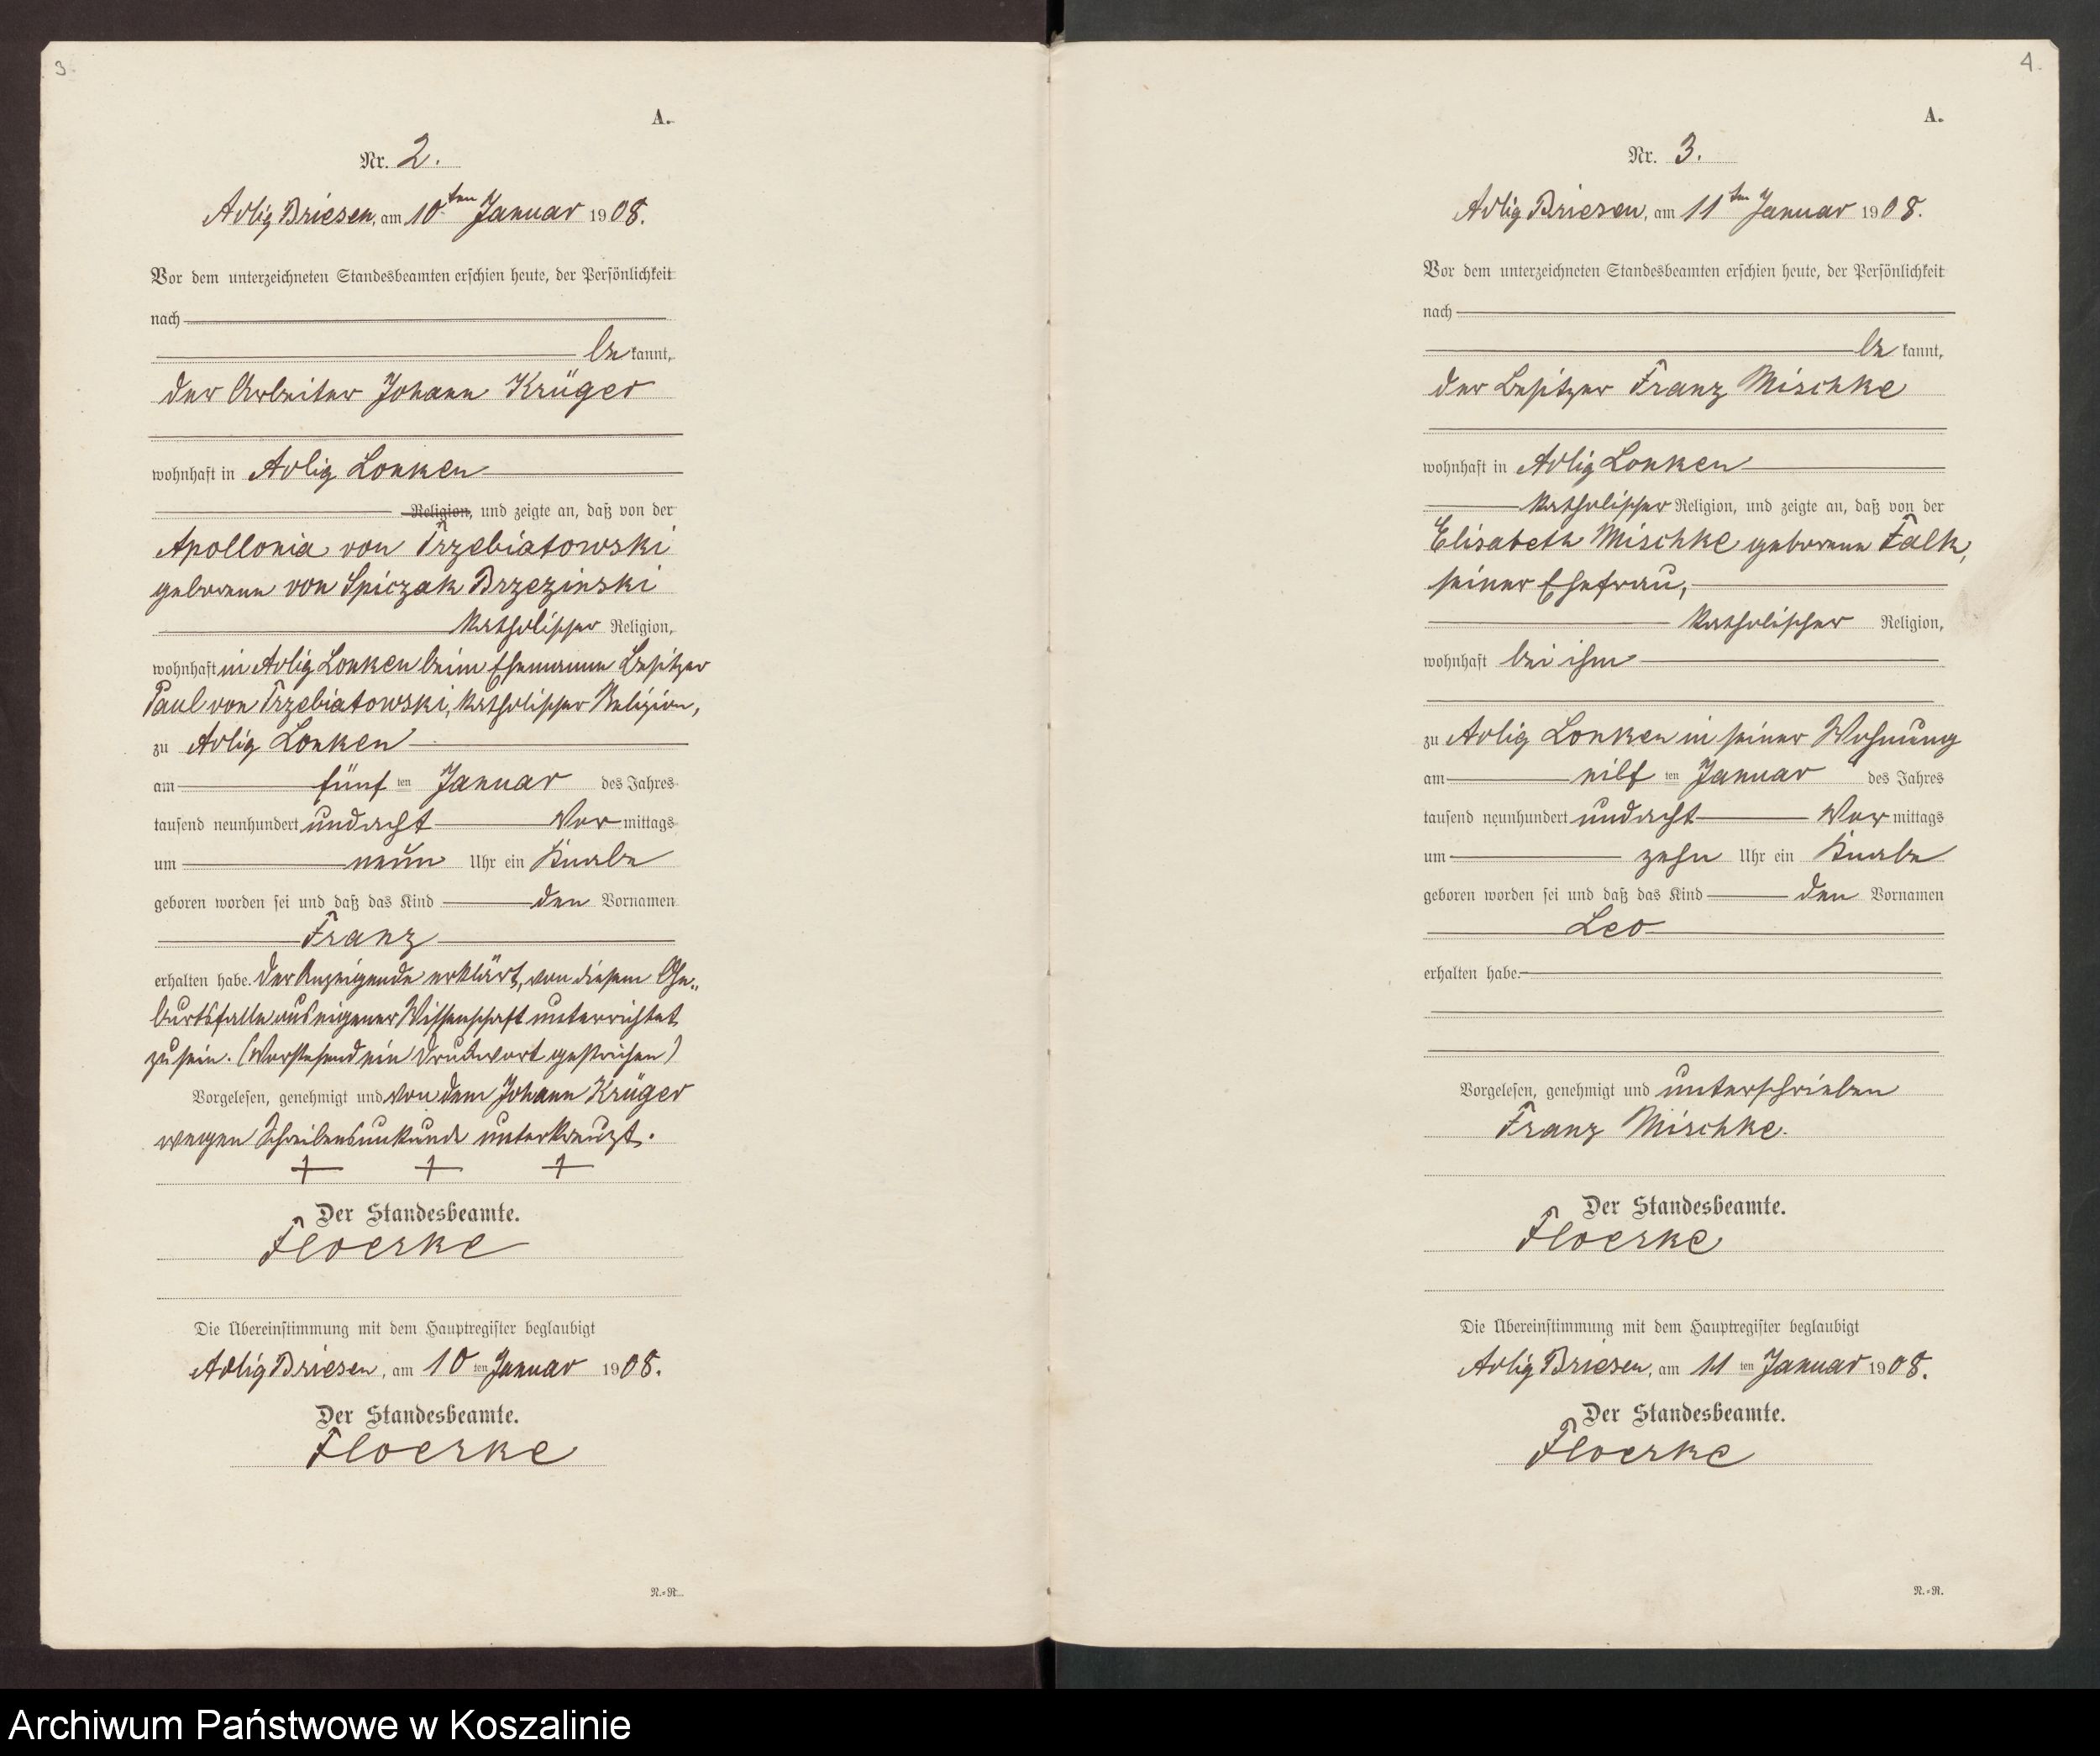 3.
A.
Nr. 2.
Adlig Briesen, am 10ten Januar 1908.
Vor dem unterzeichneten Standesbeamten erschien heute, der Persönlichkeit
nach
bekannt,
der Arbeiter Johann Krüger
wohnhaft in Adlig Lonken
Religion, und zeigte an, daß von der
Apollonia von Trzebiatowski
geborene von Spiczak Brzezinski
katholischer Religion,
wohnhaft in Adlig Lonken beim Ehemanne Besitzer
Paul von Trzebiatowski, katholischer Religion,
zu Adlig Lonken
am fünften Januar des Jahres
tausend neunhundert undacht Vormittags
um neun Uhr ein Knabe
geboren worden sei und daß das Kind den Vornamen
Franz
erhalten habe. Der Anzeigende erklärt, von diesem Ge„
burtsfalle aus eigener Wissenschaft unterrichtet
zu sein. (Vorstehend ein Druckwort gestrichen)
Vorgelesen, genehmigt und von dem Johann Krüger
wegen Schreibensunkunde unterkreuzt.
+ + +
Der Standesbeamte.
Floerke
Die Übereinstimmung mit dem Hauptregister beglaubigt
Adlig Briesen, am 10ten Januar 1908.
Der Standesbeamte.
Floerke
N.=R.
4.
A.
Nr. 3.
Adlig Briesen, am 11ten Januar 1908.
Vor dem unterzeichneten Standesbeamten erschien heute, der Persönlichkeit
nach
bekannt,
der Besitzer Franz Mischke
wohnhaft in Adlig Lonken
katholischer Religion, und zeigte an, daß von der
Elisabeth Mischke geborene Falk,
seiner Ehefrau,
katholischer Religion,
wohnhaft bei ihm
zu Adlig Lonken in seiner Wohnung
am eilften Januar des Jahres
tausend neunhundert undacht Vormittags
um zehn Uhr ein Knabe
geboren worden sei und daß das Kind den Vornamen
Leo
erhalten habe.
Vorgelesen, genehmigt und unterschrieben
Franz Mischke.
Der Standesbeamte.
Floerke
Die Übereinstimmung mit dem Hauptregister beglaubigt
Adlig Briesen, am 11ten Januar 1908.
Der Standesbeamte.
Floerke
N.=R.
Archiwum Państwowe w Koszalinie